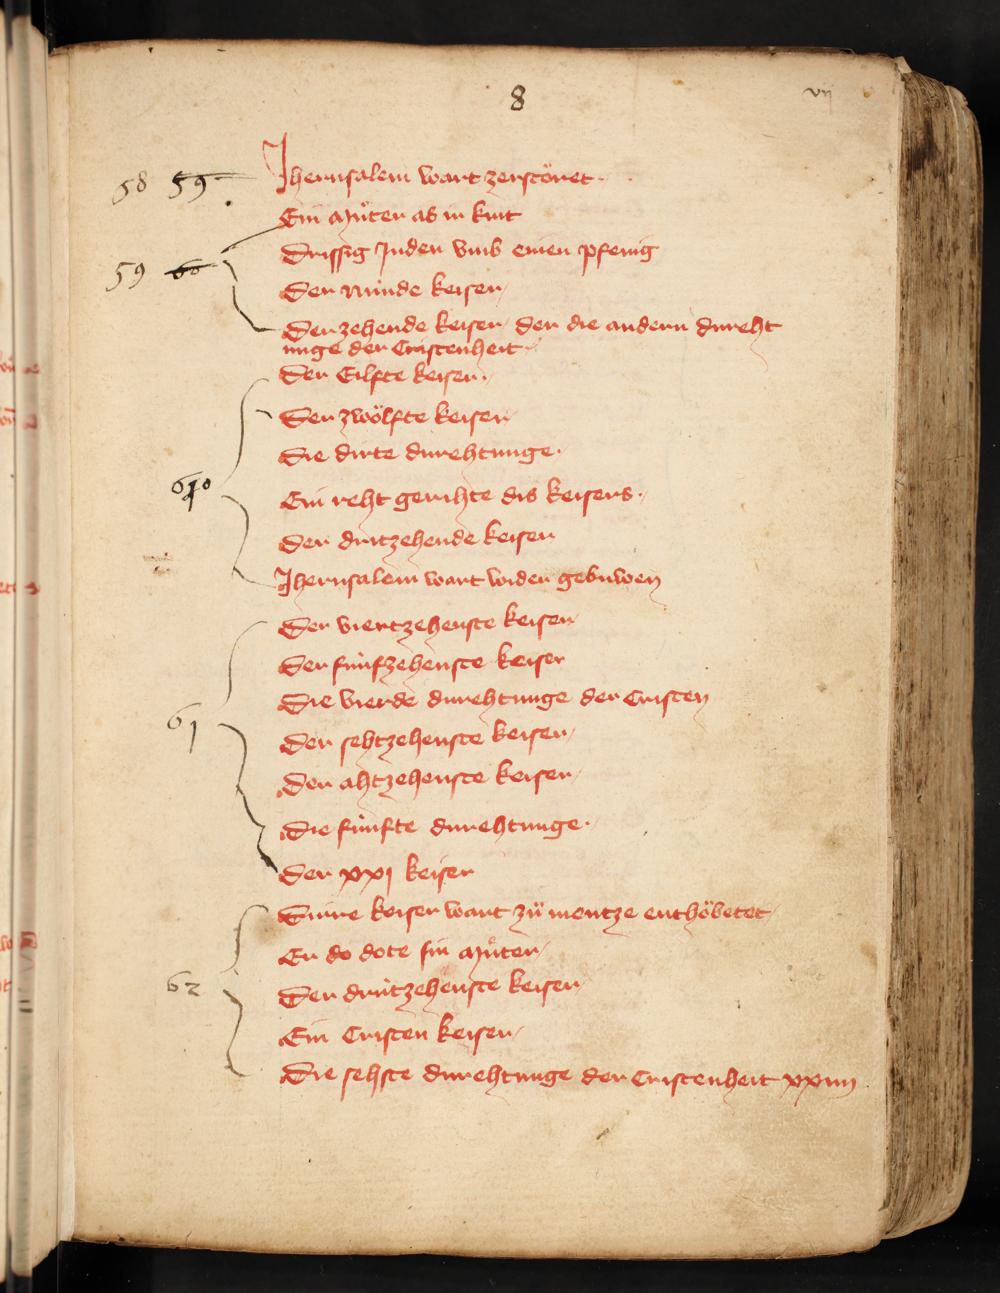 8
vij
58 59 Jherusalem wart zerstöret
Ein můter as in kint
Drissig Juden vmb einen pfenig
59 60
Der núnde keiser
Der zehende keiser der die andern dureht
unge der Cristenheit
Der Eilfte keiser
Der zwölfte keiser
Die dirte durehtunge
60
Ein reht gerihte dis keisers
Der dritzehende keiser
Jherusalem wart wider gebuwen
Der viertzehenste keiser
Der fúnfzehenste keiser
Die vierde durehtunge der Cristen
61
Der sehtzehenste keiser
Der ahtzehenste keiser
Die fúnfte durehtunge
Der xxj keiser
Dirre keiser wart zů mentze enthöbetet
Er do dote sin můter
62
Der dritzehenste keiser
Ein Cristen keiser
Die sehste durehtunge der Cristenheit xxiiij